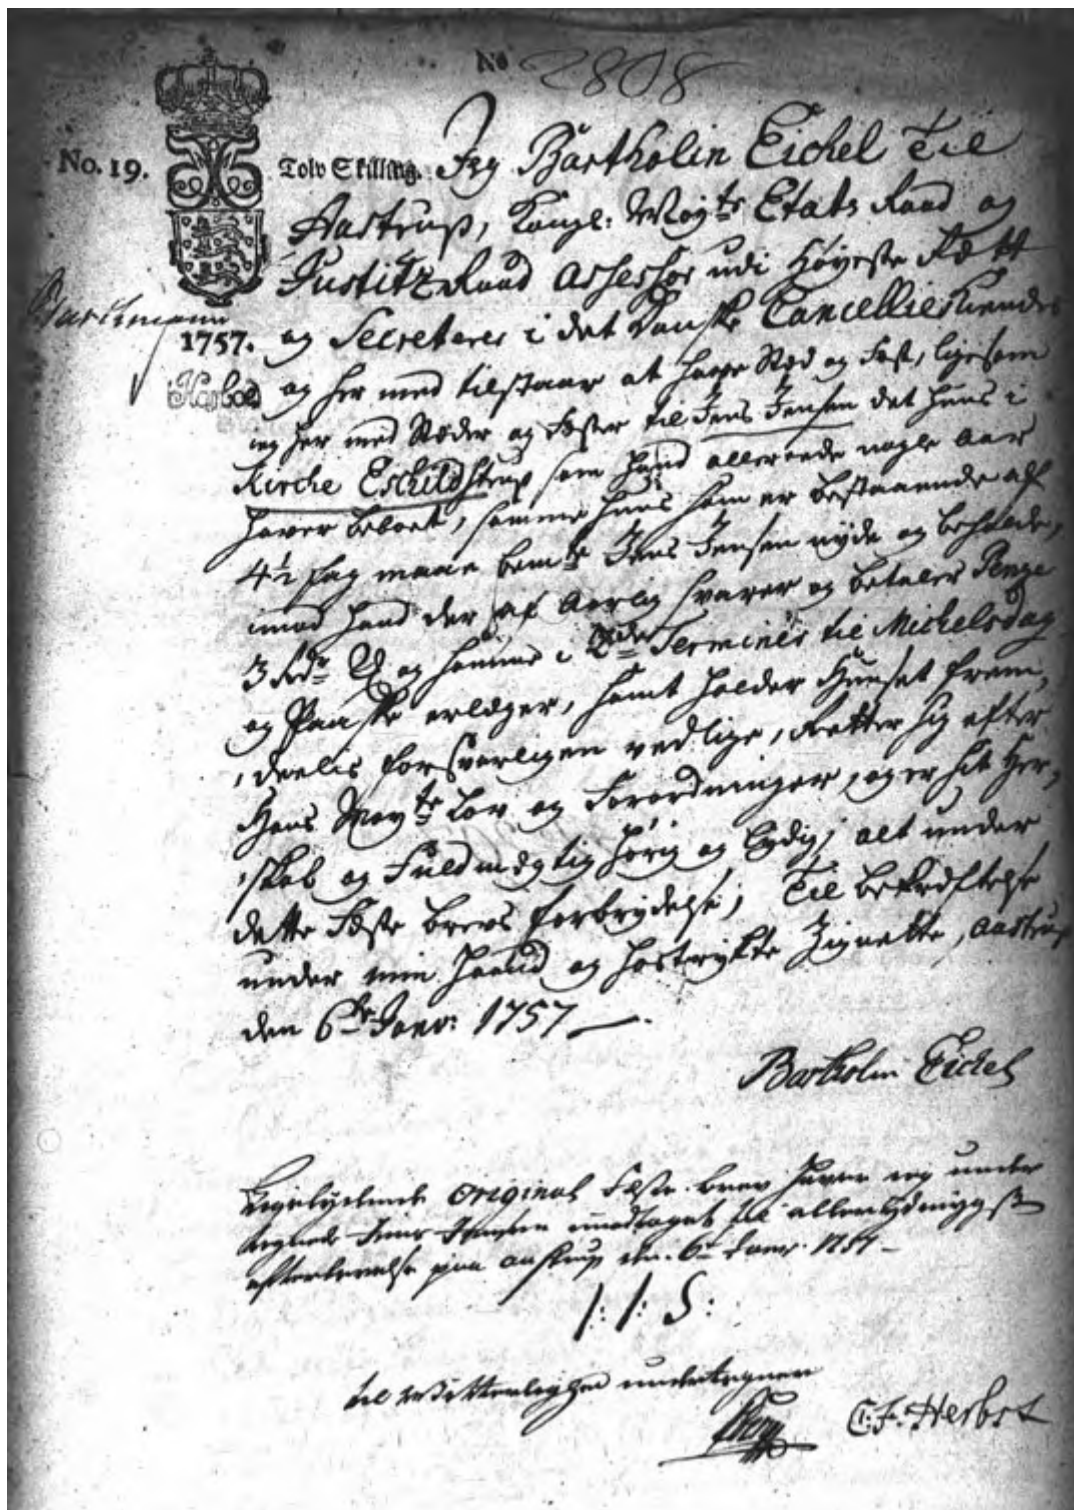 No 2808
No. 19.
Tolv Skilling. Jeg Bartholin Eichel Til
Aastrup, Kongl: Mayts Etats Raad og
Justitz Raad Assessor udi Høyeste Rett
1757. og Secreterer i det Danske Cancellie Kiender
og her med tilstaar at have Stæd og Fæst, ligesom
ieg her med Stæder og Fæster til Jens Jensen det Huus i
Kirche Eskildstrup som hand allereede nogle Aar
haver beboet, samme Huus som er bestaaende af
4½ fag maae bemte Jens Jensen nyde og beholde,
imod hand der af Aarlig svarer og betaler Penge
3 rdr og samme i 2de Terminer til Michelsdag
og Paaske erlægger, samt holder Huuset frem,
deelis forsvarligen vedlige, retter sig efter
Hans Mayts Lov og Forordninger, og er sit Her,
skab og Fuldmægtig hørig og lydig; alt under
dette Fæste Brevs forbrydelse; Til bekræftelse
under min Haand og hostrykte Zignette, Aastrup
den 6te Janv: 1757
Bartholin Eichel
Ligelydende Original Fæste brev haver ieg under
tegnede Jens Jensen imodtaget til allerlydnigst
efterlevelse paa Aastrup den 6te Janv: 1757
I: I: S:
til Vitterlighed undertegner
C: F: Herbst